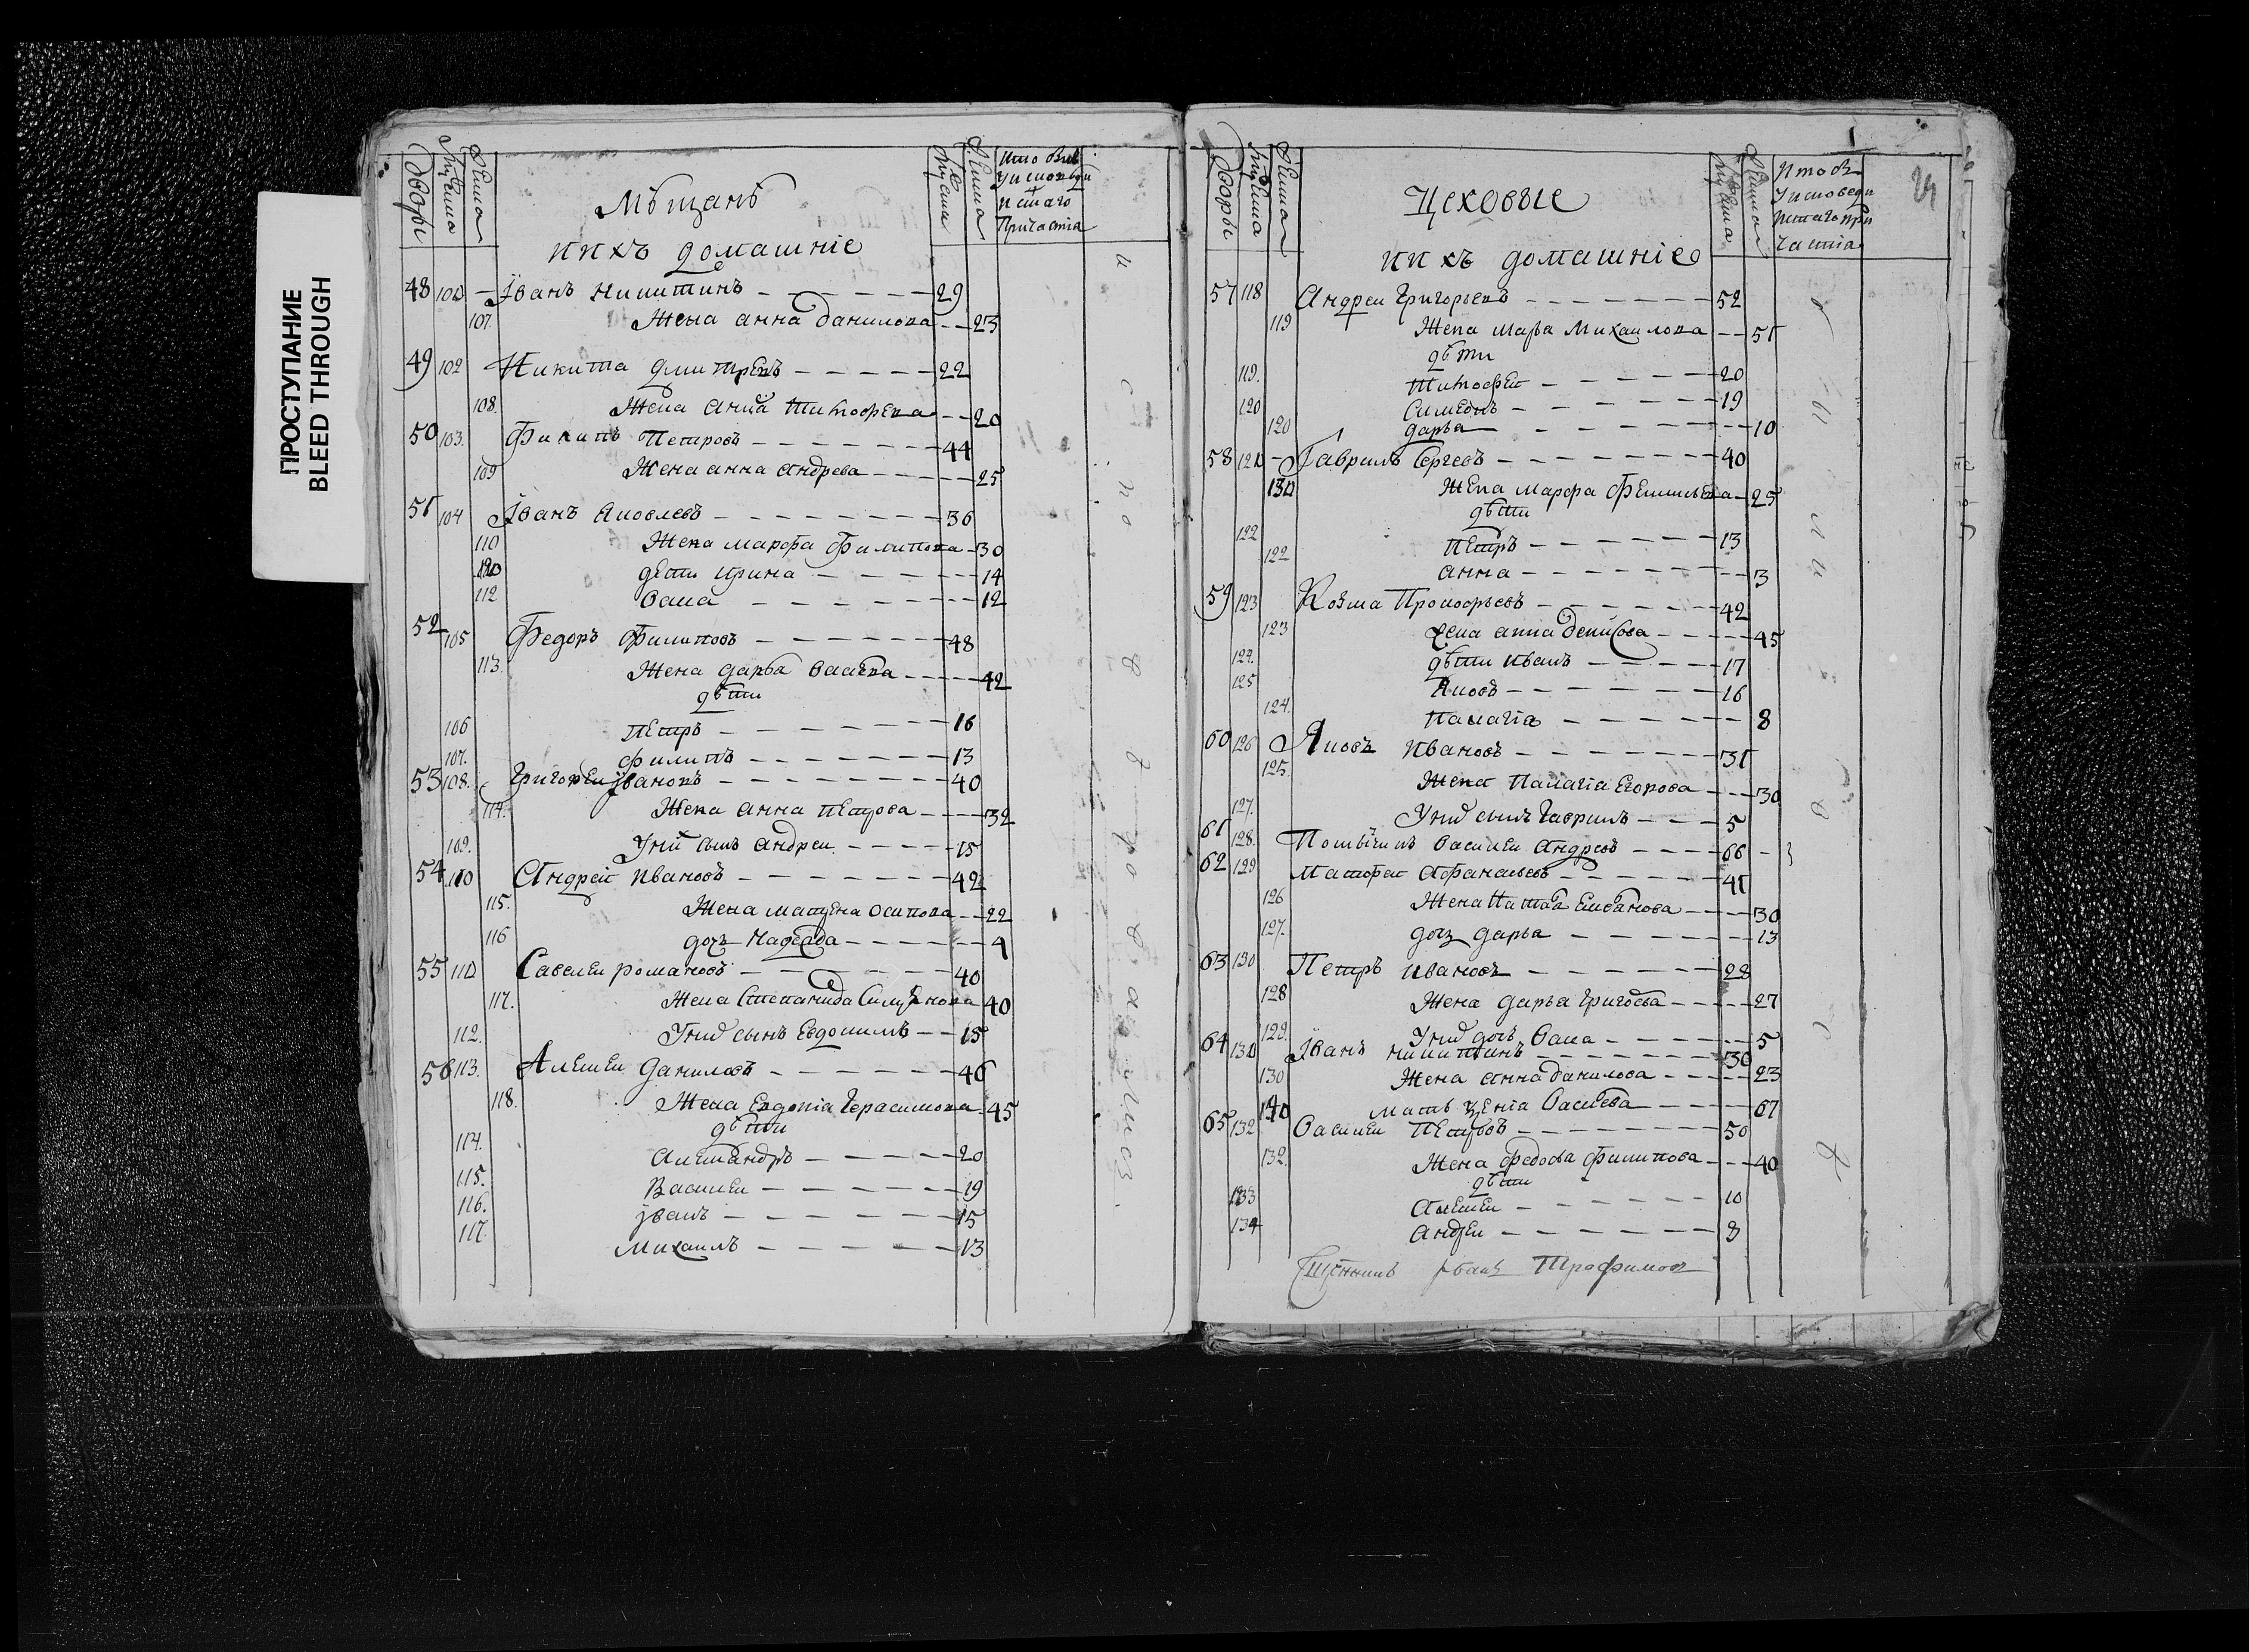 ПРОСТУПАНИЕ
BLEED THROUGH
Дворы
Мужеска
Женска
Мѣщанъ
Мужеска
Женска
Кто былъ
У исповѣди
и с͠таго
Причастіа
и ихъ домашніе
48 101 Іванъ Никитинъ 29
107. Жена анна данилова 23
49 102 Никита дмитревъ 22
108. Жена анна тимофеева 20
50 103. Филипъ Петровъ 44
109 Жена анна андрева 25
51 104 Іванъ Яковлевъ 36
110 Жена марфа филипова 30
дети ирина 14
112 12
52 105 Федоръ Филиповъ 48
113. Жена дарья 42
дѣти
106 петръ 16
107. филипъ 13
53 108. Григореи Івановъ 40
114. Жена анна петрова 32
109. У нихъ сынъ андреи 15
54 110 Андреи ивановъ 42
115. Жена матрена осипова 22
116 дочь надежда 4
55 111 Савелеи романовъ 40
117. Жена Степанида 40
112. У нихъ сынъ Евдокимъ 15
56 113. Алексеи даниловъ 46
118. Жена Евдокіа Герасимова 45
дѣти
114. Александръ 20
115. Василеи 19
116. іванъ 15
117. михаилъ 13
24
Дворы
Мужеска
Женска
Цеховые
Мужеска
Женска
Кто въ
У исповеди
и с͠таго при
частіа
и ихъ домашніе
57 118 Андреи Григорьевъ 52
119 Жена марья Михаилова 51
дѣти
119. тимофеи 20
120 Симеонъ 19
120 дарья 10
58 121 Гаврилъ Сергеевъ 40
Жена марфа 25
дѣти
122 петръ 13
122 анна 3
59 123 Козма Прокофьевъ 42
123 жена анна денисова 45
124. дѣти иванъ 17
125 Яковъ 16
124. палагіа 8
60 126 Яковъ ивановъ 31
125. Жена палагіа Егорова 30
127. У нихъ сынъ гаврилъ 5
61 128. василеи андреевъ 66
62 129 Матфеи Афанасьевъ 41
126 Жена 30
127. дочь дарья 13
63 130 Петръ ивановъ 28
128 Жена дарья григорева 27
129. У нихъ дочь 5
64 131 Іванъ никитинъ 30
130 Жена анна данилова 23
мать 67
65 132 Василеи петровъ 50
132. Жена федосья филипова 40
дѣти
133 Алексеи 10
134 Андреи 8
Іванъ Трофимовъ